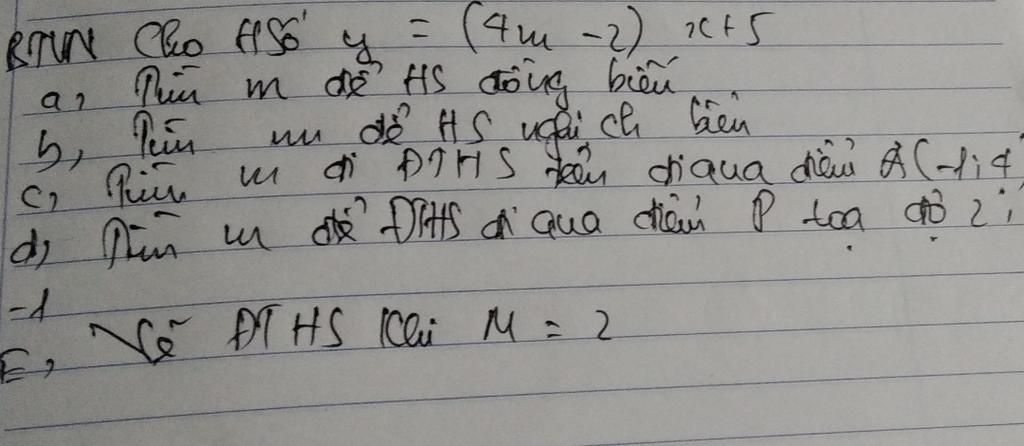 BTVN Cho HSố y = (4m - 2) x + 5
a, Tìm m để HS đồng biến
b, Tìm m để HS nghịch biến
c, Tìm m để ĐTHS trên đi qua điểm A(-1; 4
d, Tìm m để ĐTHS đi qua điểm P toạ độ 2;
-1
E, Vẽ ĐTHS Khi M = 2